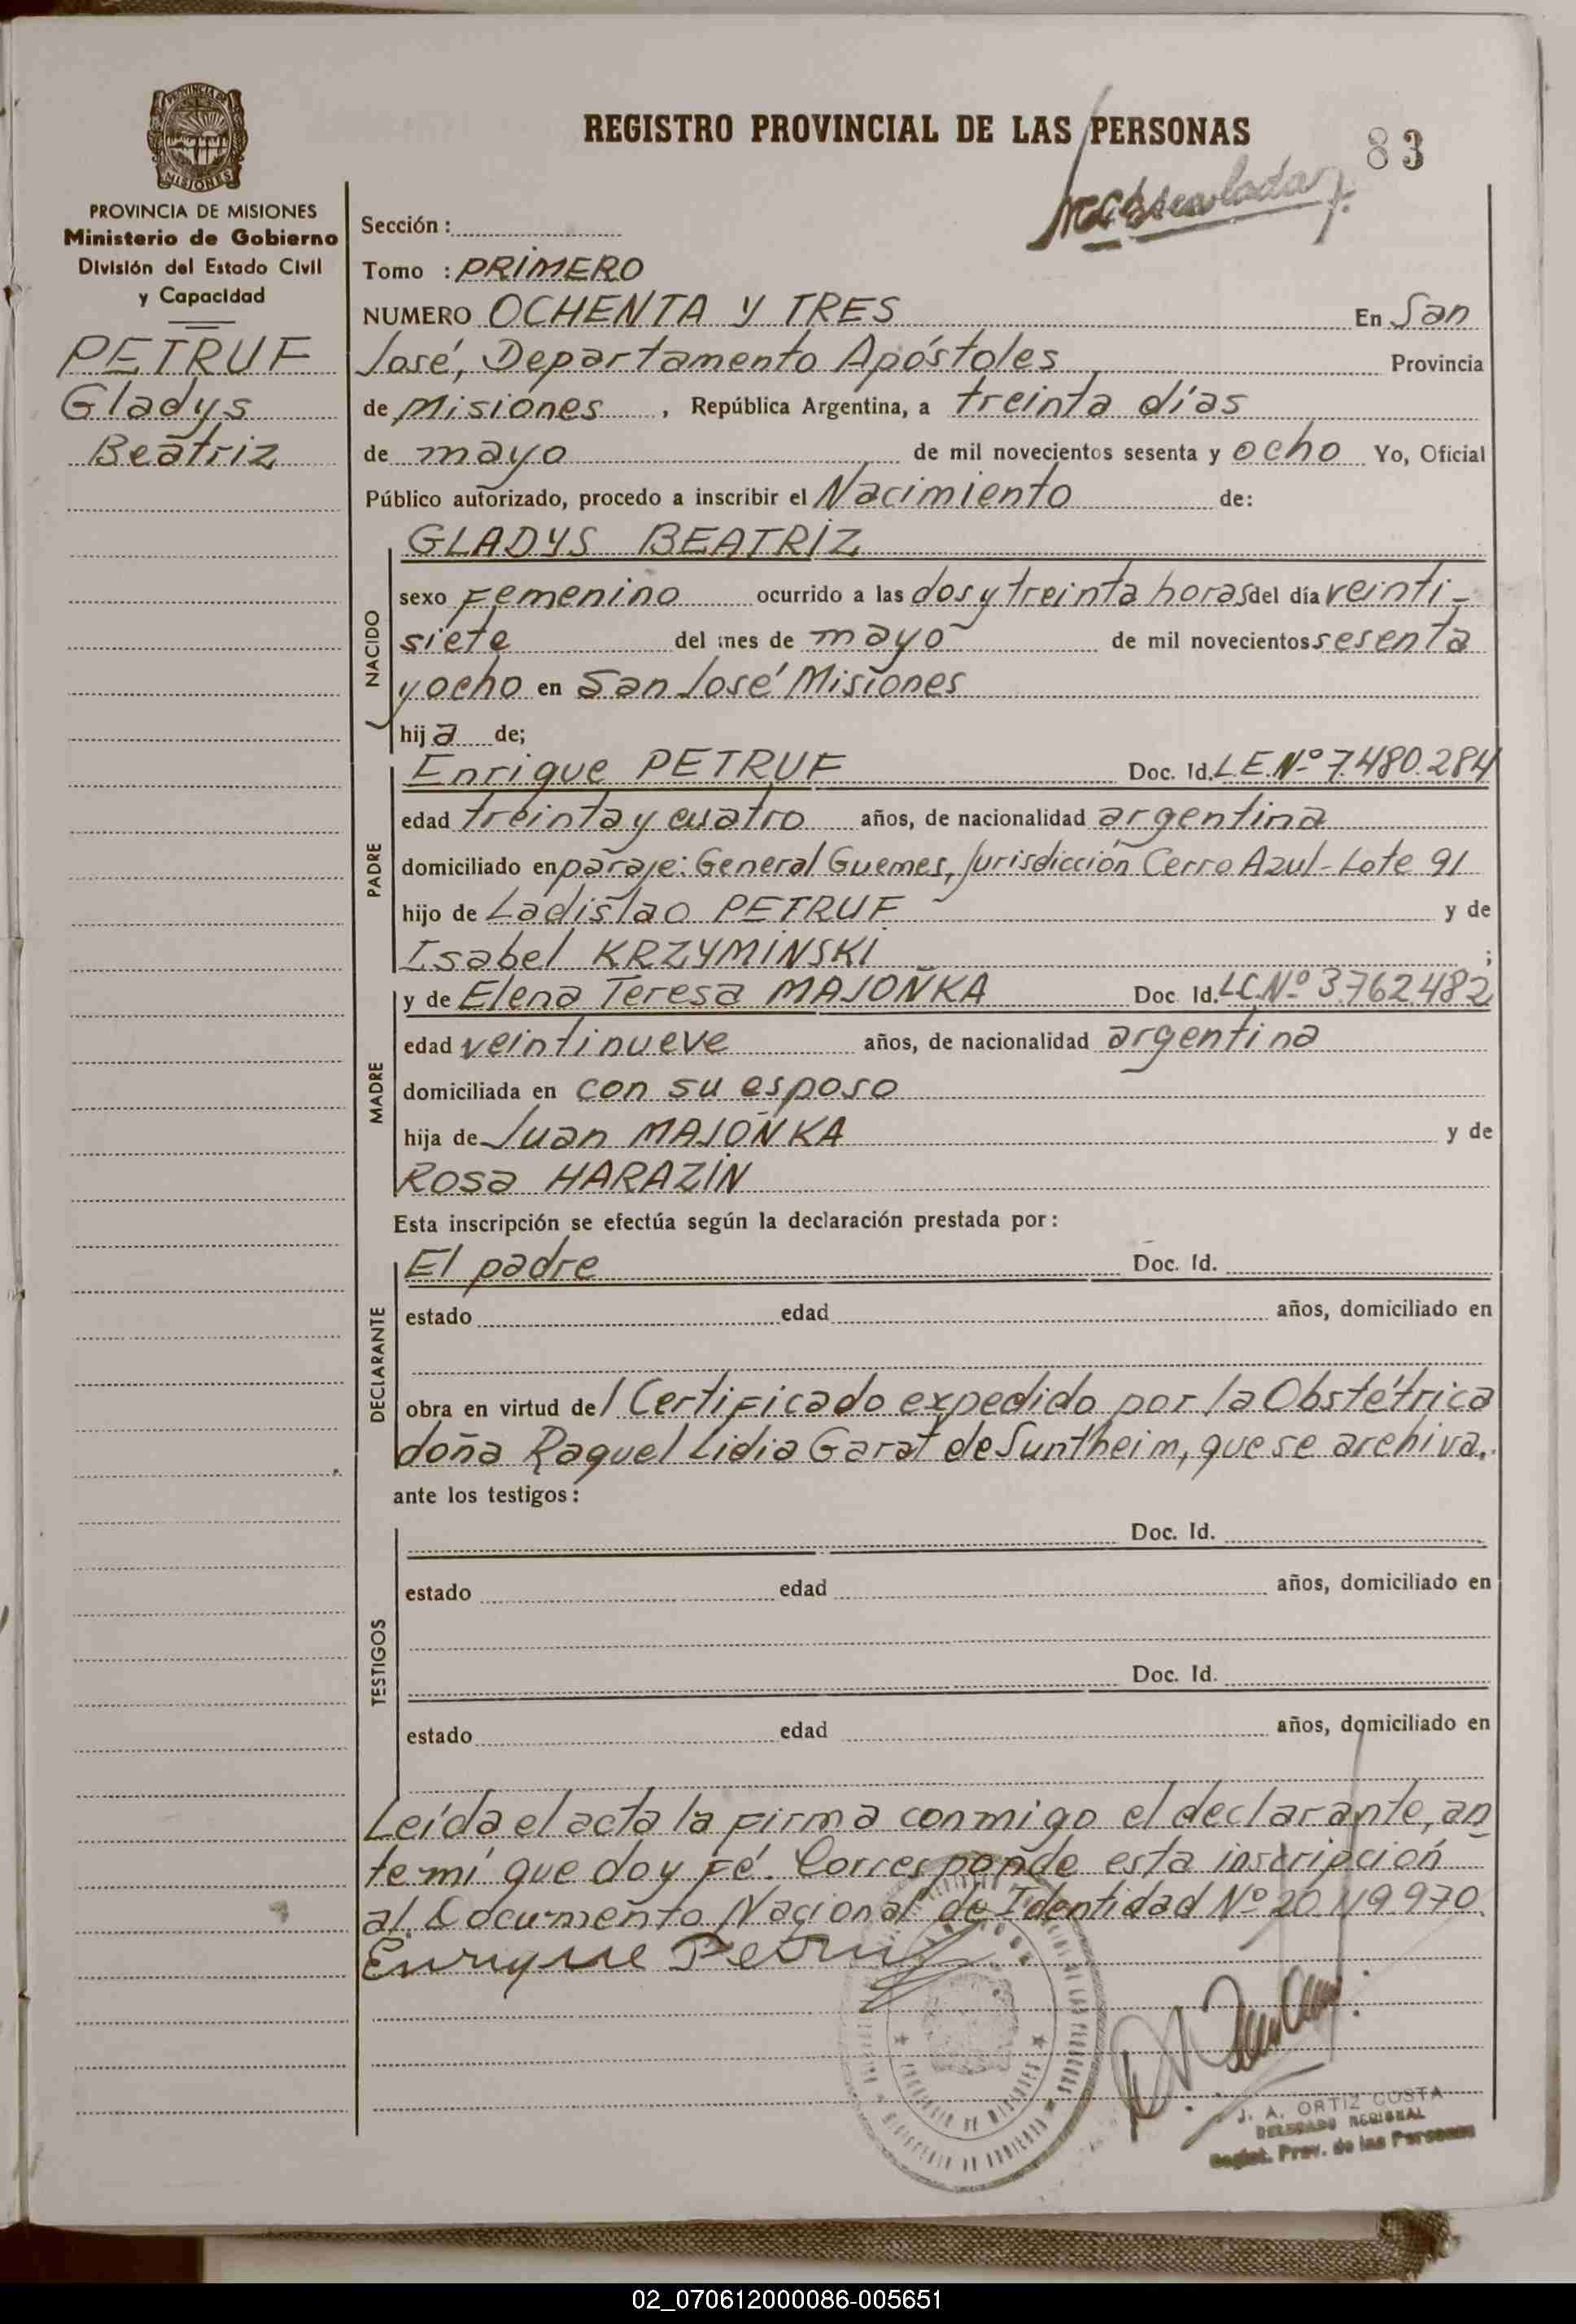 REGISTRO PROVINCIAL DE LAS PERSONAS
83
PROVINCIA DE MISIONES
MISIONES
PROVINCIA DE MISIONES
Ministerio de Gobierno
División del Estado Civil
y Capacidad
PETRUF
Gladys
Beatriz
Sección :
Tomo : PRIMERO
NUMERO OCHENTA Y TRES En San
José, Departamento Apóstoles Provincia
de Misiones , República Argentina, a treinta días
de mayo de mil novecientos sesenta y ocho Yo, Oficial
Público autorizado, procedo a inscribir el Nacimiento de:
NACIDO
GLADYS BEATRIZ
sexo Femenino ocurrido a las dos y treinta horas del día veinti-
siete del mes de mayo de mil novecientos sesenta
y ocho en San José Misiones
hija de;
PADRE
Enrique PETRUF Doc. Id. L.E. Nº 7.480.284
edad treinta y cuatro años, de nacionalidad argentina
domiciliado en paraje: General Guemes, Jurisdicción Cerro Azul - Lote 91
hijo de Ladislao PETRUF y de
Isabel KRZYMINSKI ;
MADRE
y de Elena Teresa MAJOÑKA Doc. Id. LC. Nº 3.762.482
edad veintinueve años, de nacionalidad argentina
domiciliada en con su esposo
hija de Juan MAJOÑKA y de
Rosa HARAZIN
Esta inscripción se efectúa según la declaración prestada por :
DECLARANTE
El padre Doc. Id.
estado edad años, domiciliado en
obra en virtud del Certificado expedido por la Obstétrica
doña Raquel Lidia Garat de Suntheim, que se archiva.
ante los testigos :
TESTIGOS
Doc. Id.
estado edad años, domiciliado en
Doc. Id.
estado edad años, domiciliado en
Leída el acta la firma conmigo el declarante, an
te mí que doy fé. Corresponde esta inscripción
al Documento Nacional de Identidad Nº 20.119.970.
Enrique Petruf
PROVINCIA DE MISIONES
J. A. ORTIZ COSTA
DELEGADO REGIONAL
Regist. Prov. de las Personas
02_070612000086-005651